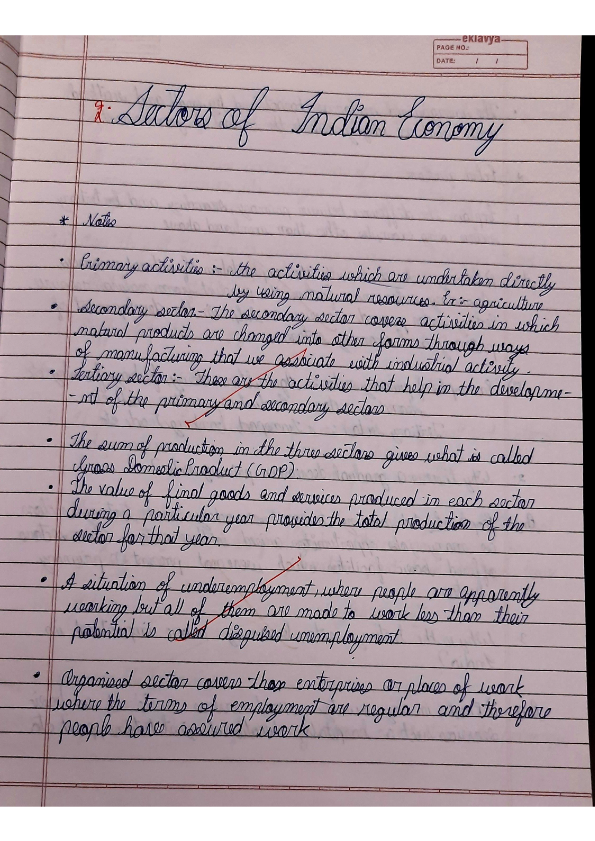 eklavya
PAGE NO.:
DATE: / /
2. Sectors of Indian Economy
* Notes
• Primary activities :- the activities which are undertaken directly
by using natural resources. Ex:- agriculture
• Secondary sector- The secondary sector covers activities in which
natural products are changed into other forms through ways
of manufacturing that we associate with industrial activity.
• Tertiary sector :- These are the activities that help in the developme-
-nt of the primary and secondary sectors
• The sum of production in the three sectors gives what is called
Gross Domestic Product (GDP)
• The value of final goods and services produced in each sector
during a particular year provides the total production of the
sector for that year.
• A situation of underemployment, where people are apparently
working but all of them are made to work less than their
potential is called disguised unemployment
• Organised sector covers those enterprises or places of work
where the terms of employment are regular and therefore
people have assured work